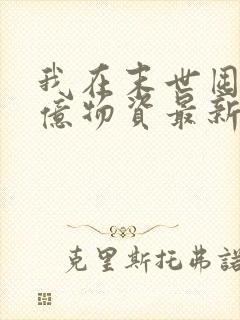 我在末世囤
億物資最新
克里斯托弗諾